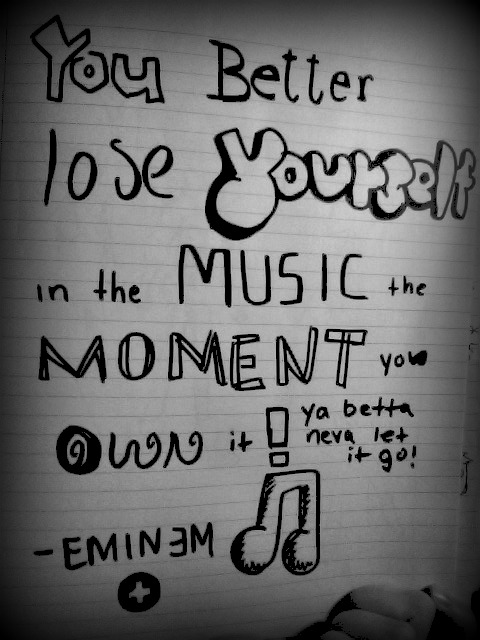 You Better
lose Yourself
in the MUSIC the
MOMENT you
OWN it! ya betta
neva let
it go!
-EMINƎM